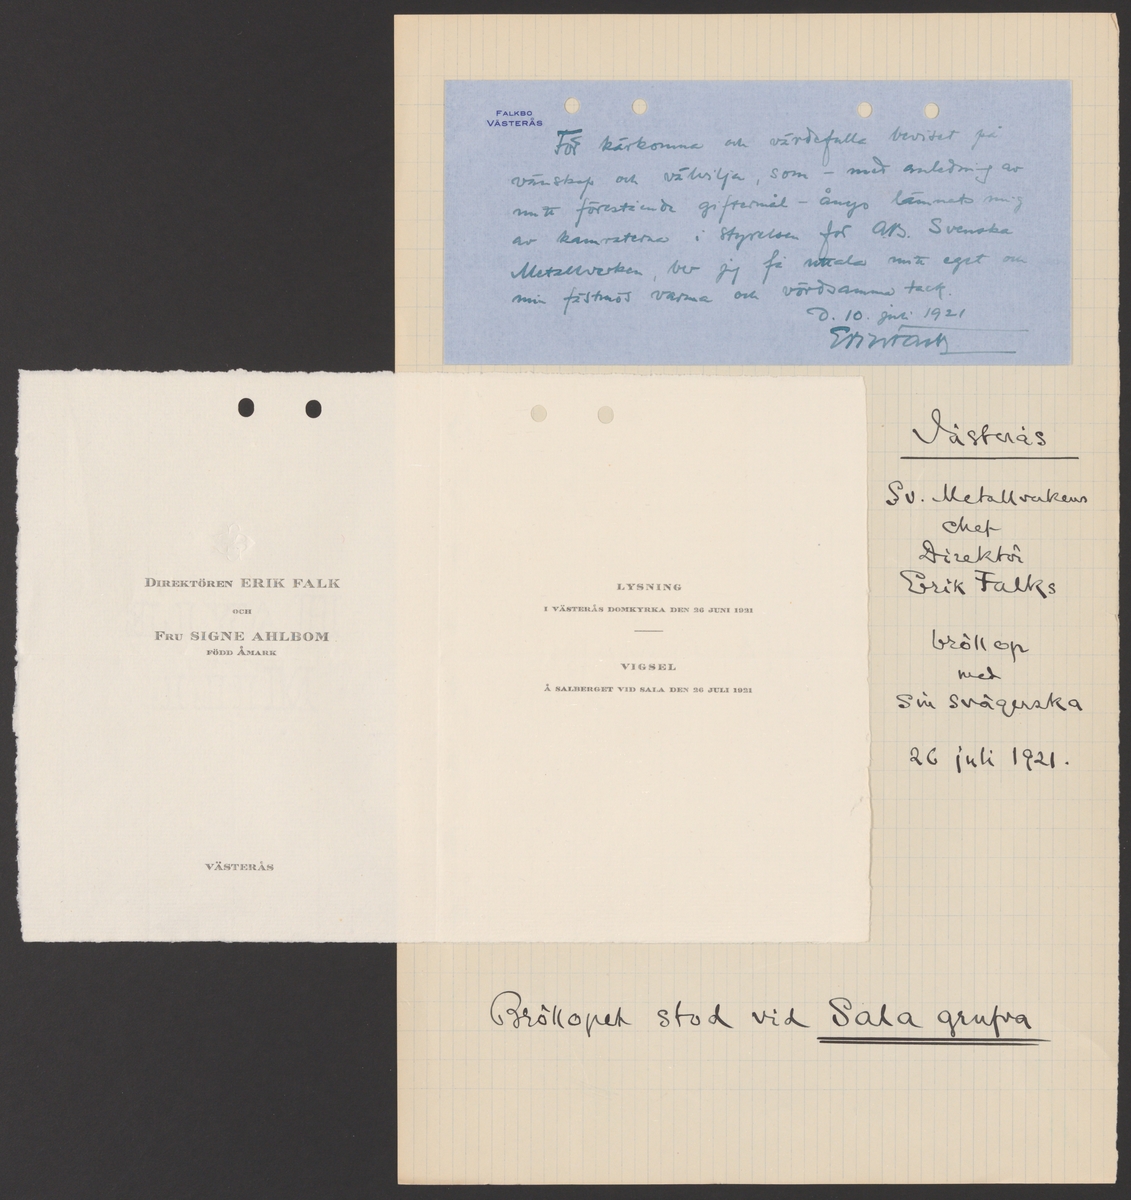 FALKBO
VÄSTERÅS
För kärkomna och värdefulla beviset på
vänskap och välvilja, som – med anledning av
mitt förestående giftermål – ånyo lämnats mig
av kamraterna i styrelsen för AB. Svenska
Metallverken, ber jag få uttala mitt eget och
min fästmös varma och vördsamma tack.
D. 10. juli 1921
Erik Falk
DIREKTÖREN ERIK FALK
OCH
FRU SIGNE AHLBOM
FÖDD ÅMARK
VÄSTERÅS
LYSNING
I VÄSTERÅS DOMKYRKA DEN 26 JUNI 1921
VIGSEL
Å SALBERGET VID SALA DEN 26 JULI 1921
Västerås
Sv. Metallverkens
chef
Direktör
Erik Falks
bröllop
med
sin svägerska
26 juli 1921.
Bröllopet stod vid Sala grufva